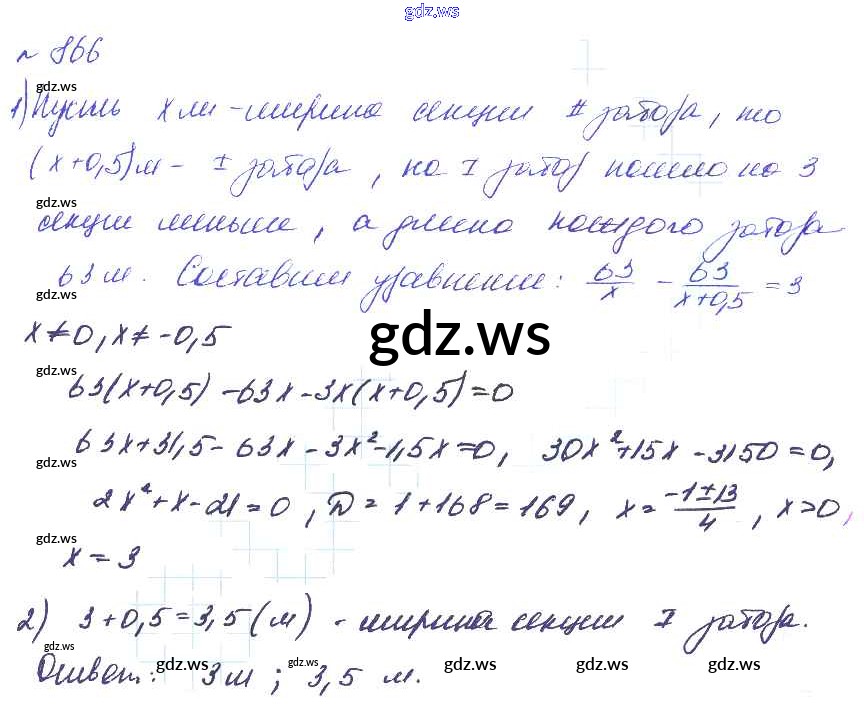 gdz.ws
№ 866
gdz.ws
1) Пусть x м - ширина секции II затора, то
(x+0,5) м - I затора, на I затор пошло на 3
gdz.ws
секции меньше, а длина каждого затора
63 м. Составим уравнение: 63/x - 63/(x+0,5) = 3
gdz.ws
x≠0, x≠-0,5
gdz.ws
gdz.ws
63(x+0,5) - 63x - 3x(x+0,5) = 0
63x+31,5 - 63x - 3x² - 1,5x = 0, 30x² + 15x - 3150 = 0,
gdz.ws
2x² + x - 21 = 0, D = 1 + 168 = 169, x = (-1±13)/4, x>0,
gdz.ws
x = 3
2) 3+0,5 = 3,5 (м) - ширина секции I затора.
gdz.ws
Ответ: 3 м ; 3,5 м.
gdz.ws gdz.ws gdz.ws gdz.ws gdz.ws